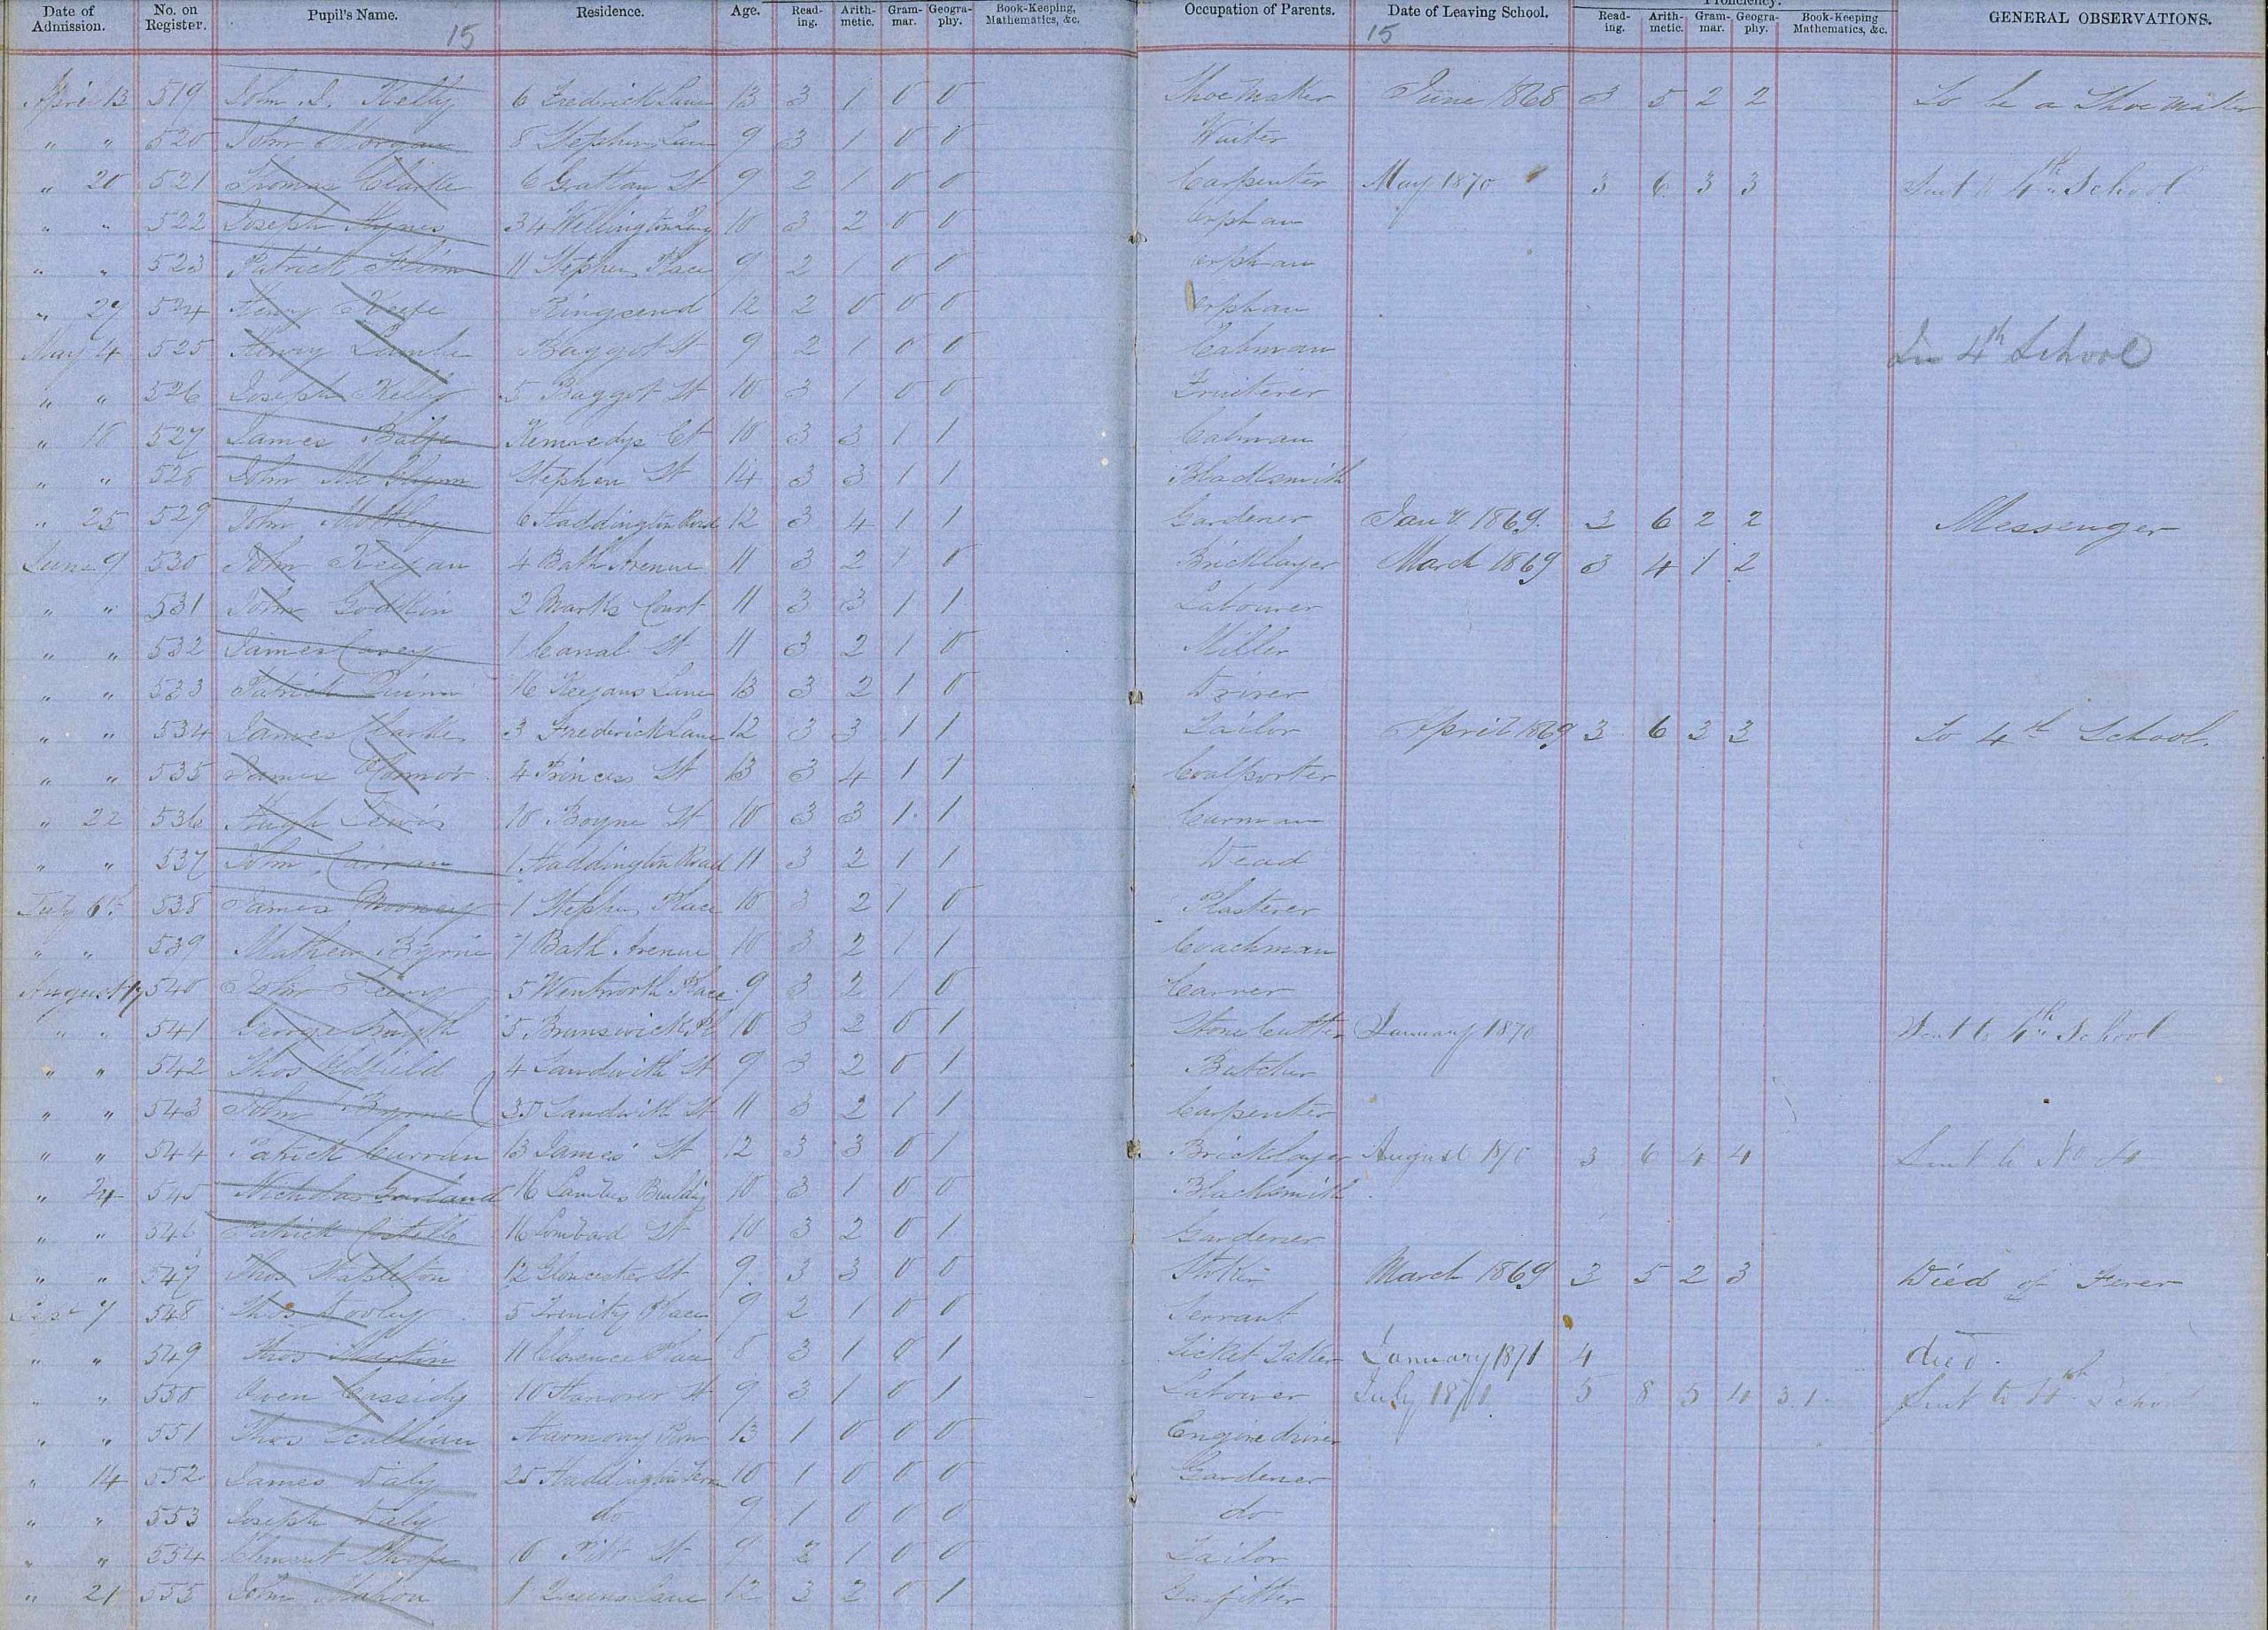 Date of Admission. No. on Register. Pupil's Name. Residence. Age. Read-ing. Arith-metic. Gram-mar. Geogra-phy. Book-Keeping, Mathematics, &c. Occupation of Parents. Date of Leaving School. Proficiency. Read-ing. Arith-metic. Gram-mar. Geogra-phy. Book-Keeping Mathematics, &c. GENERAL OBSERVATIONS.
15 15
April 13 519 John J. Kelly 6 Frederick Lane 13 3 1 0 0 Shoe Maker June 1868 3 5 2 2 To be a Shoe Maker
" " 520 John Morgan 8 Stephens Lane 9 3 1 0 0 Waiter
" 20 521 Thomas Clarke 6 Grattan St 9 2 1 0 0 Carpenter May 1870 3 6 3 3 Sent to 4th School
" " 522 Joseph Hynes 34 Wellington 10 3 2 0 0 Orphan
" " 523 Patrick 11 Stephens Place 9 2 1 0 0 Orphan
" 27 524 Henry Keefe Ringsend 12 2 0 0 0 Orphan
May 4 525 Henry Lambe Baggot St 9 2 1 0 0 Cabman In 4th School
" " 526 Joseph Kelly 5 Baggot St 10 3 1 0 0 Fruiterer
" 18 527 James Balfe Kennedys Ct 10 3 3 1 1 Cabman
" " 528 John Mc Glynn Stephen St 14 3 3 1 1 Blacksmith
" 25 529 John Mottley 6 Haddington Road 12 3 4 1 1 Gardener Jany. 1869. 3 6 2 2 Messenger
June 9 530 John Keegan 4 Bath Avenue 11 3 2 1 0 Bricklayer March 1869 3 4 1 2
" " 531 John Godkin 2 Marks Court 11 3 3 1 1 Labourer
" " 532 James Carey 1 Canal St 11 3 2 1 0 Miller
" " 533 Patrick Quinn 16 Keegans Lane 13 3 2 1 0 Driver
" " 534 James Clarke 3 Frederick Lane 12 3 3 1 1 Tailor April 1869 3 6 3 3 To 4th School.
" " 535 James Connor 4 Princess St 13 3 4 1 1 Coalporter
" 22 536 Hugh Lewis 10 Boyne St 10 3 3 1 1 Carman
" " 537 John Curran 1 Haddington Road 11 3 2 1 1 Dead
July 6th 538 James Mooney 1 Stephens Place 10 3 2 1 0 Plasterer
" " 539 Mathew Byrne 7 Bath Avenue 10 3 2 1 1 Coachman
August 17 540 John 5 Wentworth Place 9 3 2 1 0 Carver
" " 541 George Smyth 5 Brunswick Pl 10 3 2 0 1 Stone Cutter January 1870 Sent to 4th School
" " 542 Thos Oldfield 4 Sandwith St 9 3 2 0 1 Butcher
" " 543 John Byrne 35 Sandwith St 11 3 2 1 1 Carpenter
" " 544 Patrick Curran 13 James' St 12 3 3 0 1 Bricklayer August 1870 3 6 4 4 Sent to No 4
" 24 545 Nicholas Garland 16 Building 10 3 1 0 0 Blacksmith
" " 546 Patrick Costello 16 Lombard St 10 3 2 0 1 Gardener
" " 547 Thos Stapleton 12 Gloucester St 9 3 3 0 0 Stoker March 1869 3 5 2 3 Died of Fever
Sept 7 548 Thos Dooley 5 Trinity Place 9 2 1 0 0 Servant
" " 549 Thos Martin 11 Clarence Place 8 3 1 0 1 Ticket Taker January 1871 4 died.
" " 550 Owen Cassidy 10 Hanover St 9 3 1 0 1 Labourer July 1871 5 8 5 4 3.1. Sent to 4th School
" " 551 Thos Scallian Harmony Row 13 1 0 0 0 Engine driver
" 14 552 James Daly 25 Haddington Terrace 10 1 0 0 0 Gardener
" " 553 Joseph Daly do 9 1 0 0 0 do
" " 554 Clement Thorpe 6 Pitt St 9 2 1 0 0 Tailor
" 21 555 John Mahon 1 Queens Lane 12 3 2 0 1 Gasfitter